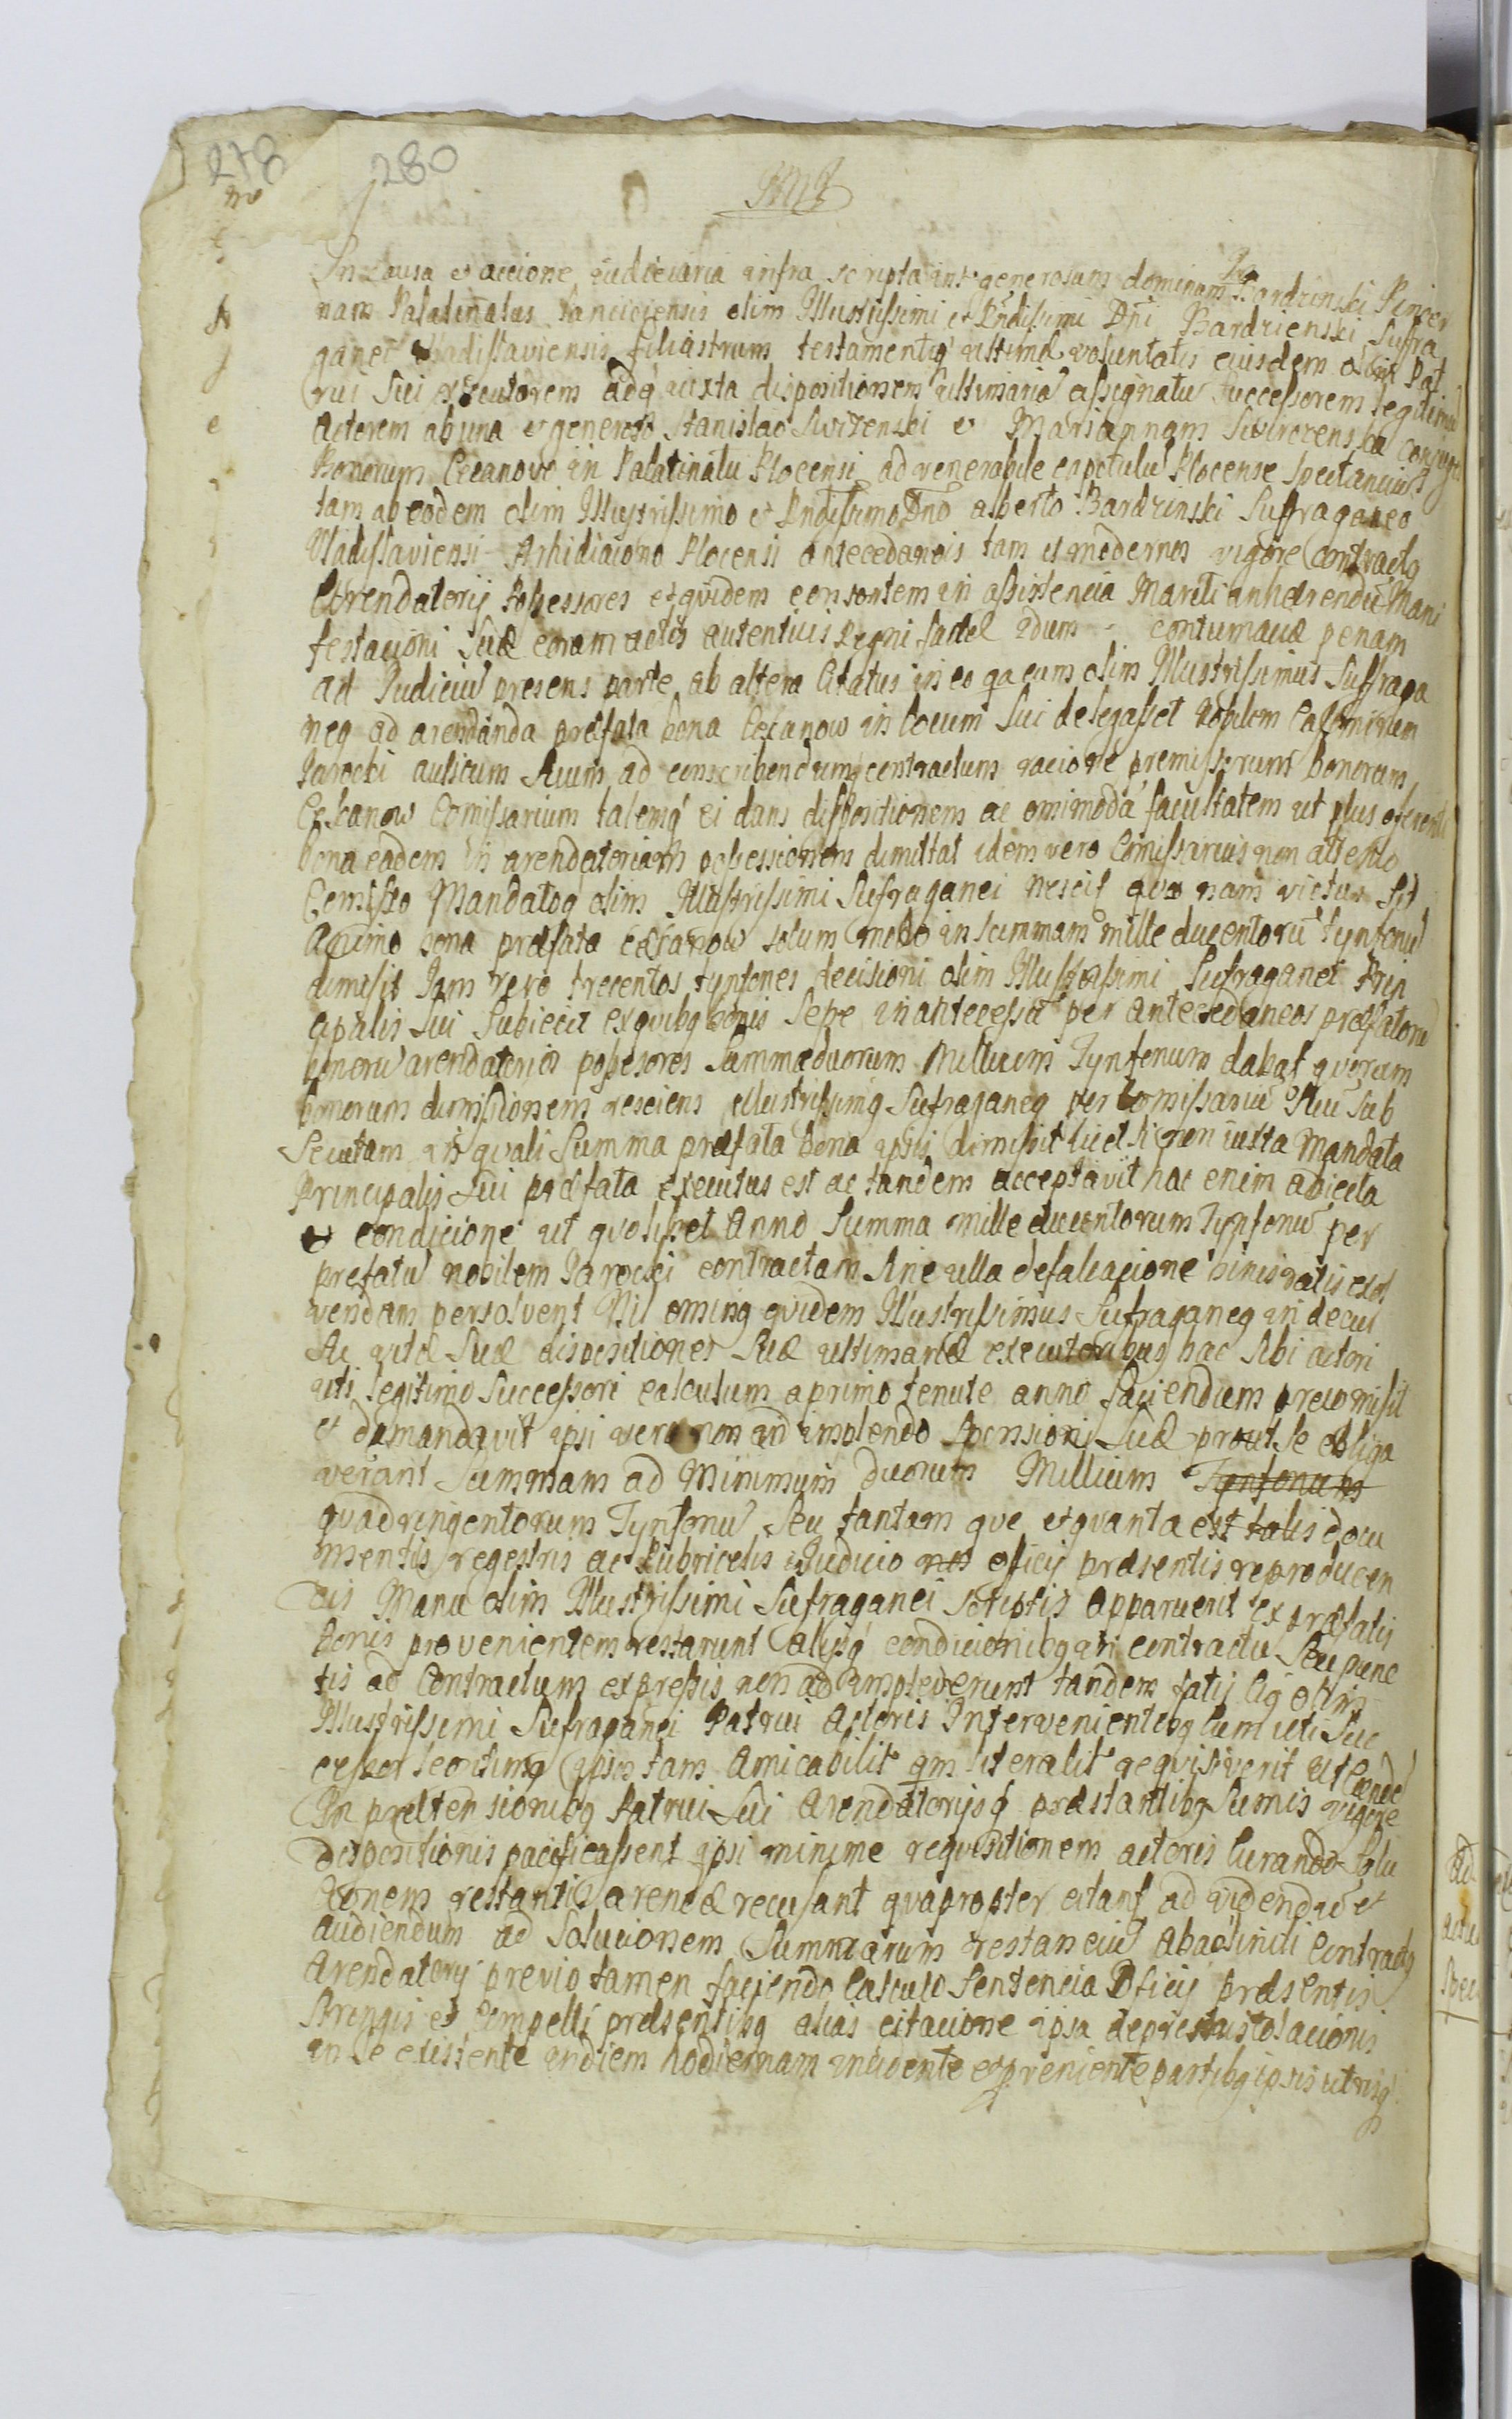 278 280
In Causa et accione iudiciaria infra scripta int generosum dominum Bardzinski Pincer
nam Palatinatus Lanciciensis olim Illustrissimi et Rndissimi Dni Bardzienski Sufra
ganei Vladislaviensis filiastrum testamentiq ultimæ voluntatis eiusdem olim Pat
rui sui executorem adq iuxta dispositionem ultimaria assignatu successorem legitimu
Actorem ab una et generoso Stanislao Swirzenski et Mariannam Swirczenska conjuges
Bonorum Cecanowo in Palatinatu Plocensi ad venerabile capitulu Plocense spectanciu
tam ab eodem olim Illustrissimo et Rndissimo Dno alberto Bardzinski Suffraganeo
Vladislaviensi Arhidiacono Plocensi antecedaneis tam et modernos vigore contractq
Arendatorij possessores et quidem consortem in assistencia Mariti inhærendu Mani
festacioni suæ coram actis autentius Regni factæ idum contumaciæ penam
ad Judiciu presens parte ab altera Citatus in eo qa cum olim Illustrissimus Suffraga
neq ad arendanda præfata bona Cecanow in locum sui delegasset nobilem Casimirum
Jarocki aulicum suum ad conscribendumq contractum racione premissorum bonorum
Cecanow Comissarium talemq ei dans dispositionem ac omimoda facultatem ut plus oferenti
bona eadem in arendatoriam possessionem dimittat idem vero Comissarius non attento
Comisso Mandatoq olim Illustrissimi Sufraganei nescit quo nam victus sit
Animo bona præfata Cecanow solum modo in summam mille ducentoru tynfonu
dimisit Jam vero trecentos tynfones decisioni olim Illustrissimi Sufraganei Prin
cipalis sui subiecit ex quibq bonis sepe in antecessu per antecedaneos præfatoru
bonoru arendatorios possesores summa duorum Millium Tynfonum dabat quorum
bonorum dimissionem resciens illustrissimq Sufraganeq per Comissariu suu sub
secutam in quali summa præfata bona ipsis dimisit licet si non iuxta Mandata
Principalis sui præfata executus est ac tandem acceptavit hac enim adiecta
et condicione ut quolibet Anno summa mille ducentorum Tynfonu per
prefatu nobilem Jarocki contractam sine ulla defalcacione binis ratis exol
vendam persolvent Nil ominq quidem Illustrissimus Sufraganeq in decur
su vitæ suæ dispositiones suæ ultimariæ executoribus hac sibi actori
uti legitimo successori calculum a primo tenute anno faciendum precomisit
et demandavit ipsi vero non ad implendo sponsioni suæ prout se obliga
verant summam ad minimum duorum Millium Tynfonum
quadringentorum Tynfonu seu tantam que et quanta est talis docu
mentis regestris ac Rubricelis iudicio nos oficij præsentis reproducen
dis Manu olim Illustrissimi Sufraganei scriptis apparuerit ex præfatis
bonis provenientem restarunt alijsq condicionibq in contractu seu punc
tis ad Contractum expressis non ad impleverunt tandem fatis Cig olim
Illustrissimi Sufraganei Patrui Actoris Intervenientibq Cum uti suc
cessor legitimq ipsos tam amicabilit qm literalit requisiverit ut eunde
In prætensionibq Patrui sui Arendatorijsq præstantibq sumis vigore
dispositionis pacificassent ipsi minime requisitionem actoris curando solu
cionem restantis arendæ recusant quapropter citant ad videndu et
audiendum ad solucionem summarum restanciu Contractq
Arendatorij previo tamen faciendo Calculo sentencia Oficij præsentis
Stringis et Compelli præsentibq alias citacione ipsa
in se existente in diem hodiernam incidente et preveniente partibq ipsis utrisq